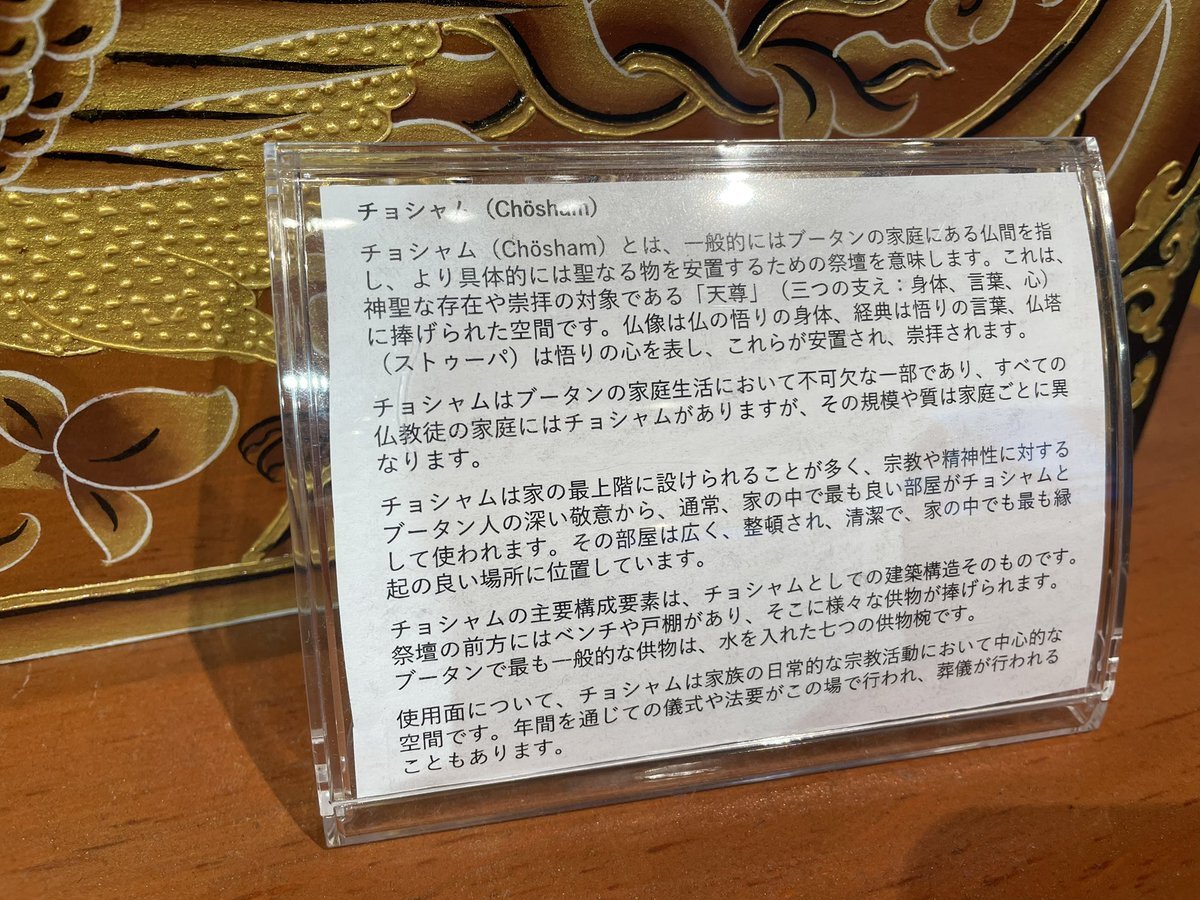 チョシャム（Chösham）
チョシャム（Chösham）とは、一般的にはブータンの家庭にある仏間を指
し、より具体的には聖なる物を安置するための祭壇を意味します。これは、
神聖な存在や崇拝の対象である「天尊」（三つの支え：身体、言葉、心）
に捧げられた空間です。仏像は仏の悟りの身体、経典は悟りの言葉、仏塔
（ストゥーパ）は悟りの心を表し、これらが安置され、崇拝されます。
チョシャムはブータンの家庭生活において不可欠な一部であり、すべての
仏教徒の家庭にはチョシャムがありますが、その規模や質は家庭ごとに異
なります。
チョシャムは家の最上階に設けられることが多く、宗教や精神性に対する
ブータン人の深い敬意から、通常、家の中で最も良い部屋がチョシャムと
して使われます。その部屋は広く、整頓され、清潔で、家の中でも最も縁
起の良い場所に位置しています。
チョシャムの主要構成要素は、チョシャムとしての建築構造そのものです。
祭壇の前方にはベンチや戸棚があり、そこに様々な供物が捧げられます。
ブータンで最も一般的な供物は、水を入れた七つの供物椀です。
使用面について、チョシャムは家族の日常的な宗教活動において中心的な
空間です。年間を通じての儀式や法要がこの場で行われ、葬儀が行われる
こともあります。